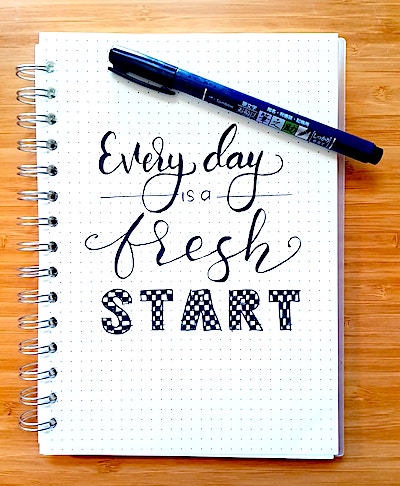 Every day
is a
fresh
START
Tombow